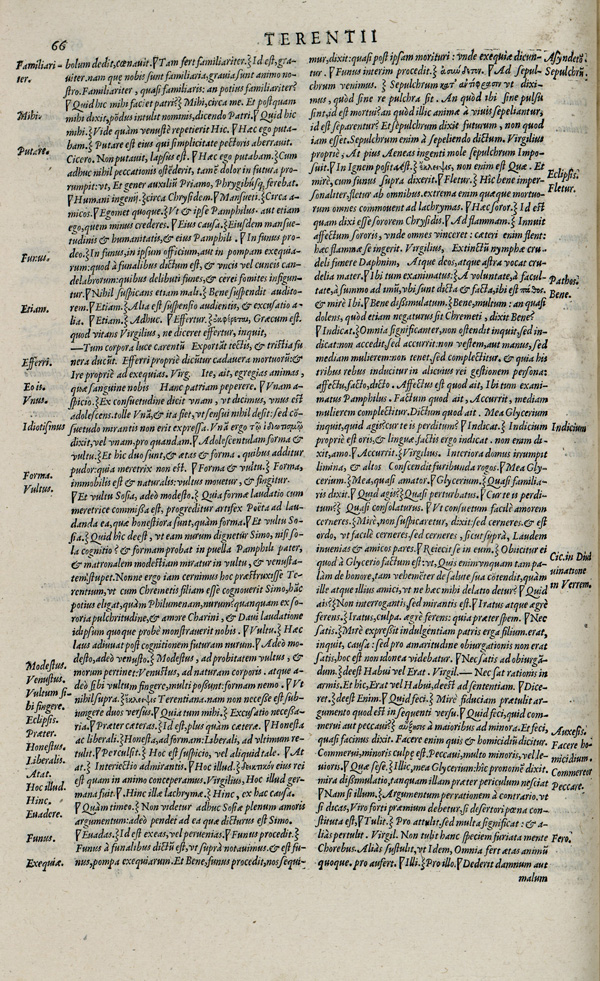 66
TERENTII
Familiari-
ter.
Mihi.
Putare.
Funus.
Etiam.
Efferri.
Eo is.
Vnus.
Idiotismus
Forma.
Vultus.
Modestus.
Venustus.
Vultum si-
bi fingere.
Eclipsis.
Præter.
Honestus.
Liberalis.
Atat.
Hoc illud.
Hinc.
Euadere.
Funus.
Exequiæ.
bolum dedit, cœnauit. Tam fert familiariter. Id est, gra-
uiter. nam quę nobis sunt familiaria, grauia sunt animo no-
stro. Familiariter, quasi familiaris: an potius familiariter?
Quid hic mihi faciet patri? Mihi, circa me. Et postquam
mihi dixit, põdus intulit nominis, dicendo Patri. Quid hic
mihi. Vide quàm venustè repetierit Hic. Hæc ego puta-
bam. Putare est eius qui simplicitate pectoris aberrauit.
Cicero. Non putauit, lapsus est. Hæc ego putabam. Cum
adhuc nihil peccationis ostẽderit, tamẽ dolor in futura pro-
rumpit: vt, Et gener auxiliũ Priamo, Phrygibúsq; ferebat.
Humani ingenij. circa Chrysidem. Mansueti. Circa a-
micos. Egomet quoque. Vt & ipse Pamphilus. aut etiam
ego, quem minus crederes. Eius causa. Eiusdem mansue-
tudinis & humanitatis, & eius Pamphili. In funus pro-
deo. In funus, in ipsum officium, aut in pompam exequia-
rum: quod à funalibus dictum est, & vncis vel cuneis can-
delabrorum: quibus delibuti funes, & cerei fomites infigun-
tur. Nihil suspicans etiam mali. Bene suspendit audito-
rem. Etiam. Alia est suspensio audientis, & excusatio a-
lia. Etiam. Adhuc. Effertur. Græcum est.
quod vitans Virgilius, ne diceret effertur, inquit,
—Tum corpora luce carentũ Exportãt tectis, & tristia fu
nera ducũt. Efferri propriè dicũtur cadauera mortuorũ: &
Ire propriè ad exequias. Virg. Ite, ait, egregias animas,
quæ sanguine nobis Hanc patriam peperere. Vnam a-
spicio. Ex consuetudine dicit vnam, vt dicimus, vnus est
adolescens. tolle Vnã, & ita fiet, vt sensui nihil desit: sed cõ-
suetudo mirantis non erit expressa. Vnã ergo
dixit, vel vnam, pro quandam. Adolescentulam forma &
vultu. Et hîc duo sunt, & ætas & forma. quibus additur
pudor: quia meretrix non est. Forma & vultu. Forma,
immobilis est & naturalis: vultus mouetur, & fingitur.
Et vultu Sosia, adeò modesto. Quia formæ laudatio cum
meretrice commissa est, progreditur artifex Poëta ad lau-
danda ea, quæ honestiora sunt, quàm forma. Et vultu So-
sia. Quid hîc deest, vt eam nurum dignetur Simo, nisi so-
la cognitio? & formam probat in puella Pamphili pater,
& matronalem modestiam miratur in vultu, & venusta-
tem stupet. Nonne ergo iam cernimus hoc præstruxisse Te-
rentium, vt cum Chremetis filiam esse cognouerit Simo, hãc
potius eligat, quàm Philumenam, nurum: quanquam ex so-
roria pulchritudine, & amore Charini, & Daui laudatione
idipsum quoque probè monstrauerit nobis. Vultu. Hæc
laus adiuuat post cognitionem futuram nurum. Adeò mo-
desto, adeò venusto. Modestus, ad probitatem vultus, &
morum pertinet: Venustus, ad naturam corporis. atque a-
deò sibi vultum fingere, multi possunt: formam nemo. Vt
nihil supra. Terentiana. nam non necesse est sub-
iungere duos versus. Quia tum mihi. Excusatio necessa-
ria. Præter cæteras. Id est, plus quàm cæteræ. Honesta
ac liberali. Honesta, ad formam, Liberali, ad vltimum re-
tulit. Percussit. Hoc est suspicio, vel aliquid tale. At
at. Interiectio admirantis. Hoc illud. eius rei
est quam in animo conceperamus. Virgilius, Hoc illud ger-
mana fuit. Hinc illæ lachrymæ. Hinc, ex hac causa.
Quàm timeo. Non videtur adhuc Sosiæ plenum amoris
argumentum: adeò pendet ad ea quæ dicturus est Simo.
Euadas. Id est exeas, vel peruenias. Funus procedit.
Funus à funalibus dictũ est, vt suprà notauimus. & est fu-
nus, pompa exequiarum. Et Bene, funus procedit, nos sequi-
mur, dixit: quasi post ipsam morituri: vnde exequiæ dicun-
tur. Funus interim procedit. Ad sepul-
chrum venimus. Sepulchrum vt dixi-
mus, quòd sine re pulchra sit. An quòd ibi sine pulsu
sint, id est mortui? an quòd illic animæ à viuis sepeliantur,
id est separentur? Et sepulchrum dixit futurum, non quod
iam esset. Sepulchrum enim à sepeliendo dictum. Virgilius
propriè, At pius Aeneas ingenti mole sepulchrum Impo-
suit. In Ignem posita est. non enim est Quæ. Et
mirè, cum funus supra dixerit. Fletur. Hîc bene imper-
sonaliter, fletur ab omnibus. extrema enim quæque mortuo-
rum omnes commouent ad lachrymas. Hæc soror. Id est
quam dixi esse sororem Chrysidis. Ad flammam. Innuit
affectum sororis, vnde omnes vinceret: cæteri enim flent:
hæc flammæ se ingerit. Virgilius, Extinctũ nymphæ cru-
deli funere Daphnim, Atque deos, atque astra vocat cru-
delia mater. Ibi tum exanimatus. A voluntate, à facul-
tate, à summo ad imũ, vbi sunt dicta & facta, ibi est
& mirè Ibi. Bene dissimulatum. Bene, multum: an quasi
dolens, quòd etiam negaturus sit Chremeti, dixit Bene?
Indicat. Omnia significanter, non ostendit inquit, sed in-
dicat: non accedit, sed accurrit: non vestem, aut manus, sed
mediam mulierem: non tenet, sed complectitur. & quia his
tribus rebus inducitur in alicuius rei gestionem persona:
affectu, facto, dicto. Affectus est quod ait, Ibi tum exani-
matus Pamphilus. Factum quod ait, Accurrit, mediam
mulierem complectitur. Dictum quod ait. Mea Glycerium
inquit, quid agis? cur te is perditum? Indicat. Indicium
propriè est oris, & linguæ. factis ergo indicat. non enim di-
xit, amo. Accurrit. Virgilius. Interiora domus irrumpit
limina, & altos Conscendit furibunda rogos. Mea Gly-
cerium. Mea, quasi amator. Glycerium. Quasi familia-
ris dixit. Quid agis? Quasi perturbatus. Cur te is perdi-
tum? Quasi consolaturus. Vt consuetum facilè amorem
cerneres. Mirè, non suspicaretur, dixit: sed cerneres. & est
ordo, vt facilè cerneres. sed cerneres, sicut suprà, Laudem
inuenias & amicos pares. Reiecit se in eum. Obsicitur ei
quòd à Glycerio factum est: vt, Quis enim vnquam tam pa-
làm de honore, tam vehemẽter de salute sua cõtendit, quàm
ille atque illius amici, vt ne hæc mihi delatio detur? Quid
ais? Non interrogantis, sed mirantis est. Iratus atque ægrè
ferens. Iratus, culpa. ægrè ferens: quia præter spem. Nec
satis. Mirè expressit indulgentiam patris erga filium. erat,
inquit, causa: sed pro amaritudine obiurgationis non erat
satis, hoc est non idonea videbatur. Nec satis ad obiurgã-
dum. deest Habui vel Erat. Virgil.—Nec sat rationis in
armis. Et hîc, Erat vel Habui, deest ad sententiam. Dice-
ret. deest Enim. Quid feci. Mirè fiduciam prætulit ar-
gumento quod est in sequenti versu. Quid feci, quid com-
merui aut peccaui? a maioribus ad minora. Et feci,
quasi facinus dixit. Facere enim quis & homicidiũ dicitur.
Commerui, minoris culpę est. Peccaui, multo minoris, vel le-
uioris. Quæ sese. Illic, mea Glycerium: hîc pronomẽ dixit.
mira dissimulatio, tanquam illam præter periculum nesciat
Nam si illum. Argumentum per rationem à contrario. vt
si dicas, Viro forti præmium debetur, si desertori pœna con-
stituta est. Tulit. Pro attulit, sed multa significat: & a-
liàs pertulit. Virgil. Non tulit hanc speciem furiata mente
Chorebus. Aliàs sustulit, vt Idem, Omnia fert ætas animũ
quoque. pro aufert. Illi. Pro illo. Dederit damnum aut
malum
Asyndetõ
Sepulchrũ.
Eclipsis.
Fletur.
Pathos.
Bene.
Indicium
Cic. in Diui
uinatione
in Verrem.
Auxesis.
Facere ho-
micidium.
Commereri
Peccare.
Fero.